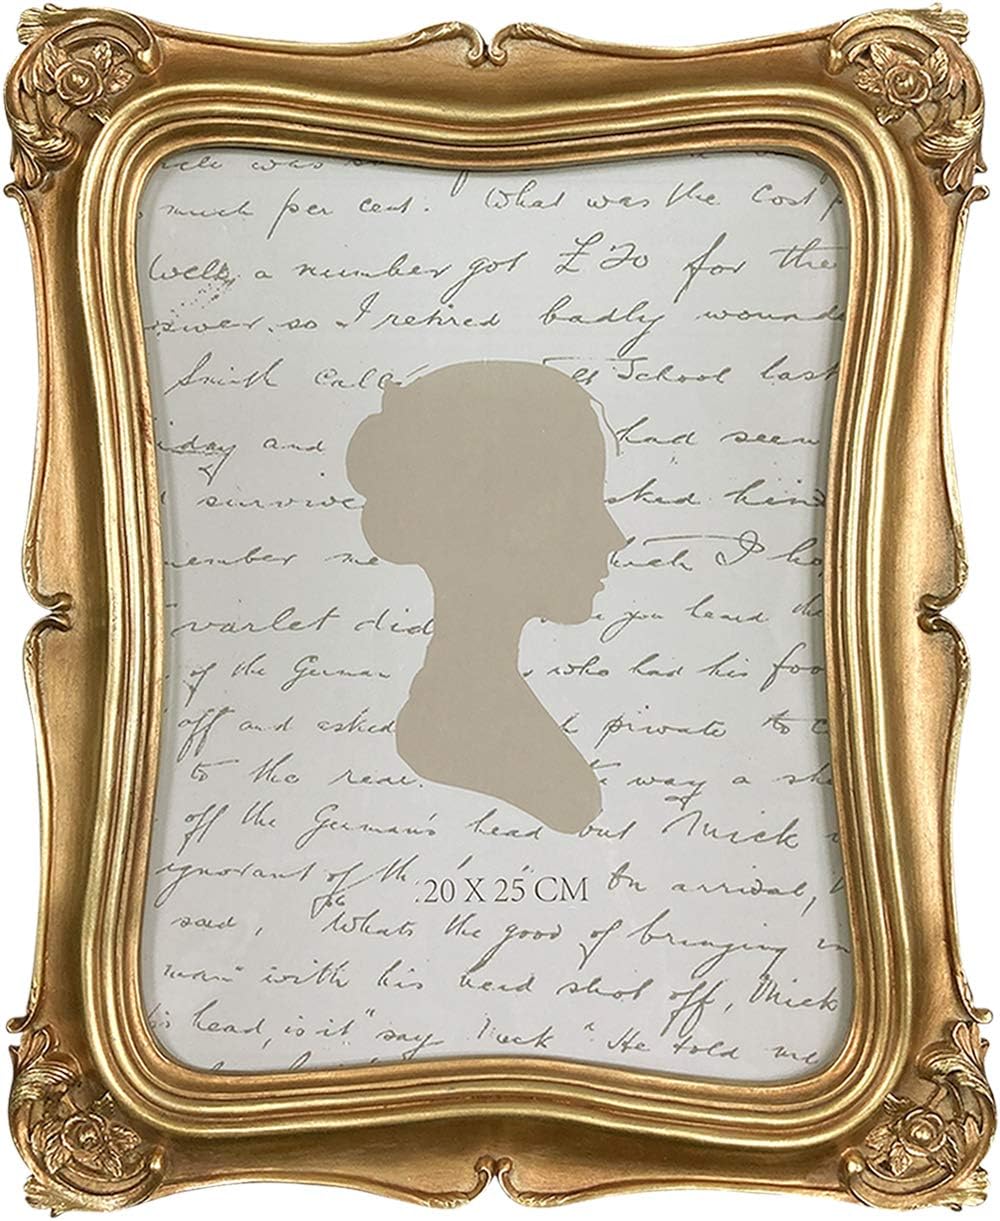 much per cent. What was the cost
Well, a number got £20 for the
so I retired badly
Smith School last
and had seen
member me I
varlet did you heard
of the German who had his
off and asked private to
to the rear way a
off the German's head but Mick
ignorant of the On arrival,
20 X 25 CM
said, Whats the good of bringing in
man" with his head shot off, Mick
head, is it" say Mick "He told me